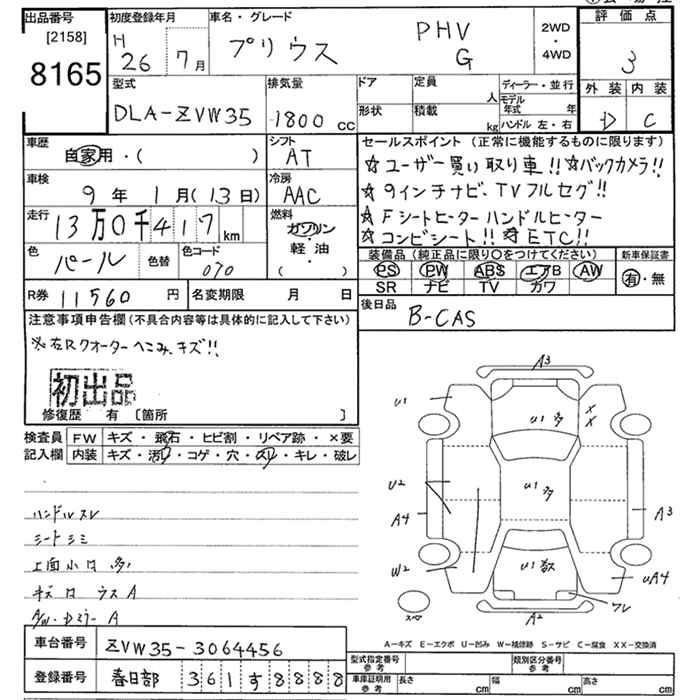 出品番号
[2158]
8165
初度登録年月
H 26 7月
車名・グレード
プリウス PHV G
2WD
・
4WD
評価点
3
外装 内装
D C
型式
DLA-ZVW35
排気量
1800 cc
ドア
形状
定員 人
積載 kg
ディーラー・並行
モデル年式 年
ハンドル 左・右
車歴
自家用・( )
シフト
AT
車検
9年1月(13日)
冷房
AAC
走行
13万0千417km
燃料
ガソリン・軽油・( )
色
パール
色替
色コード
070
セールスポイント (正常に機能するものに限ります)
☆ユーザー買い取り車!!☆バックカメラ!!
☆9インチナビ、TVフルセグ!!
☆Fシートヒーター ハンドルヒーター
☆コンビシート!!☆ETC!!
装備品 (純正品に限り○をつけてください)
PS PW ABS エアB AW
SR ナビ TV カワ
新車保証書
有・無
R券 11560 円
名変期限 月 日
後日品
B-CAS
注意事項申告欄(不具合内容等は具体的に記入して下さい)
※右Rクオーターへこみ、キズ!!
初出品
修復歴 有 〔箇所 〕
検査員記入欄
FW キズ・飛石・ヒビ割・リペア跡・×要
内装 キズ・汚レ・コゲ・穴・スレ・キレ・破レ
ハンドルスレ
シートシミ
上面小U多
キズ U ウスA
A/W・Dミラー A
A3
U1
U1多
XX
U2
A4
U1多
A3
W2
U1
UA4
ワレ
A2
スペア
A-キズ E-エクボ U-凹み W-補修跡 S-サビ C-腐食 XX-交換済
車台番号 ZVW35-3064456
登録番号 春日部 361 す 8888
型式指定番号 参考
類別区分番号 参考
車庫証明用 参考
長さ cm 幅 cm 高さ cm